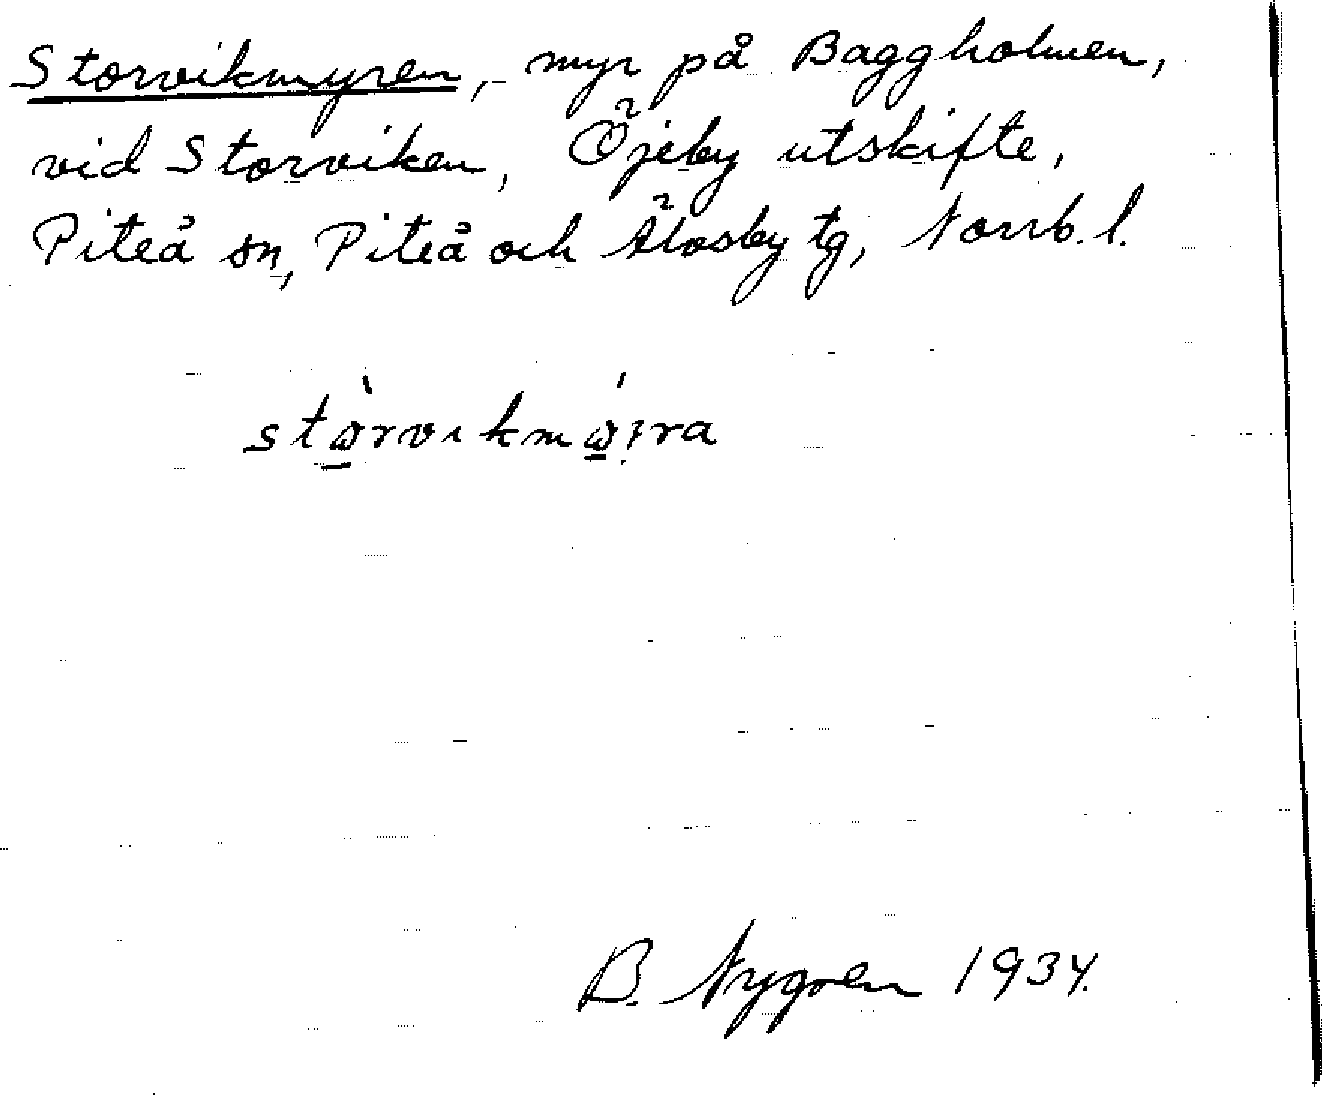 Storvikmyren, myr på Baggholmen,
vid Storviken, Öjeby utskifte,
Piteå sn, Piteå och Älvsby tg, Norrb. l.
B. Nygren 1934.